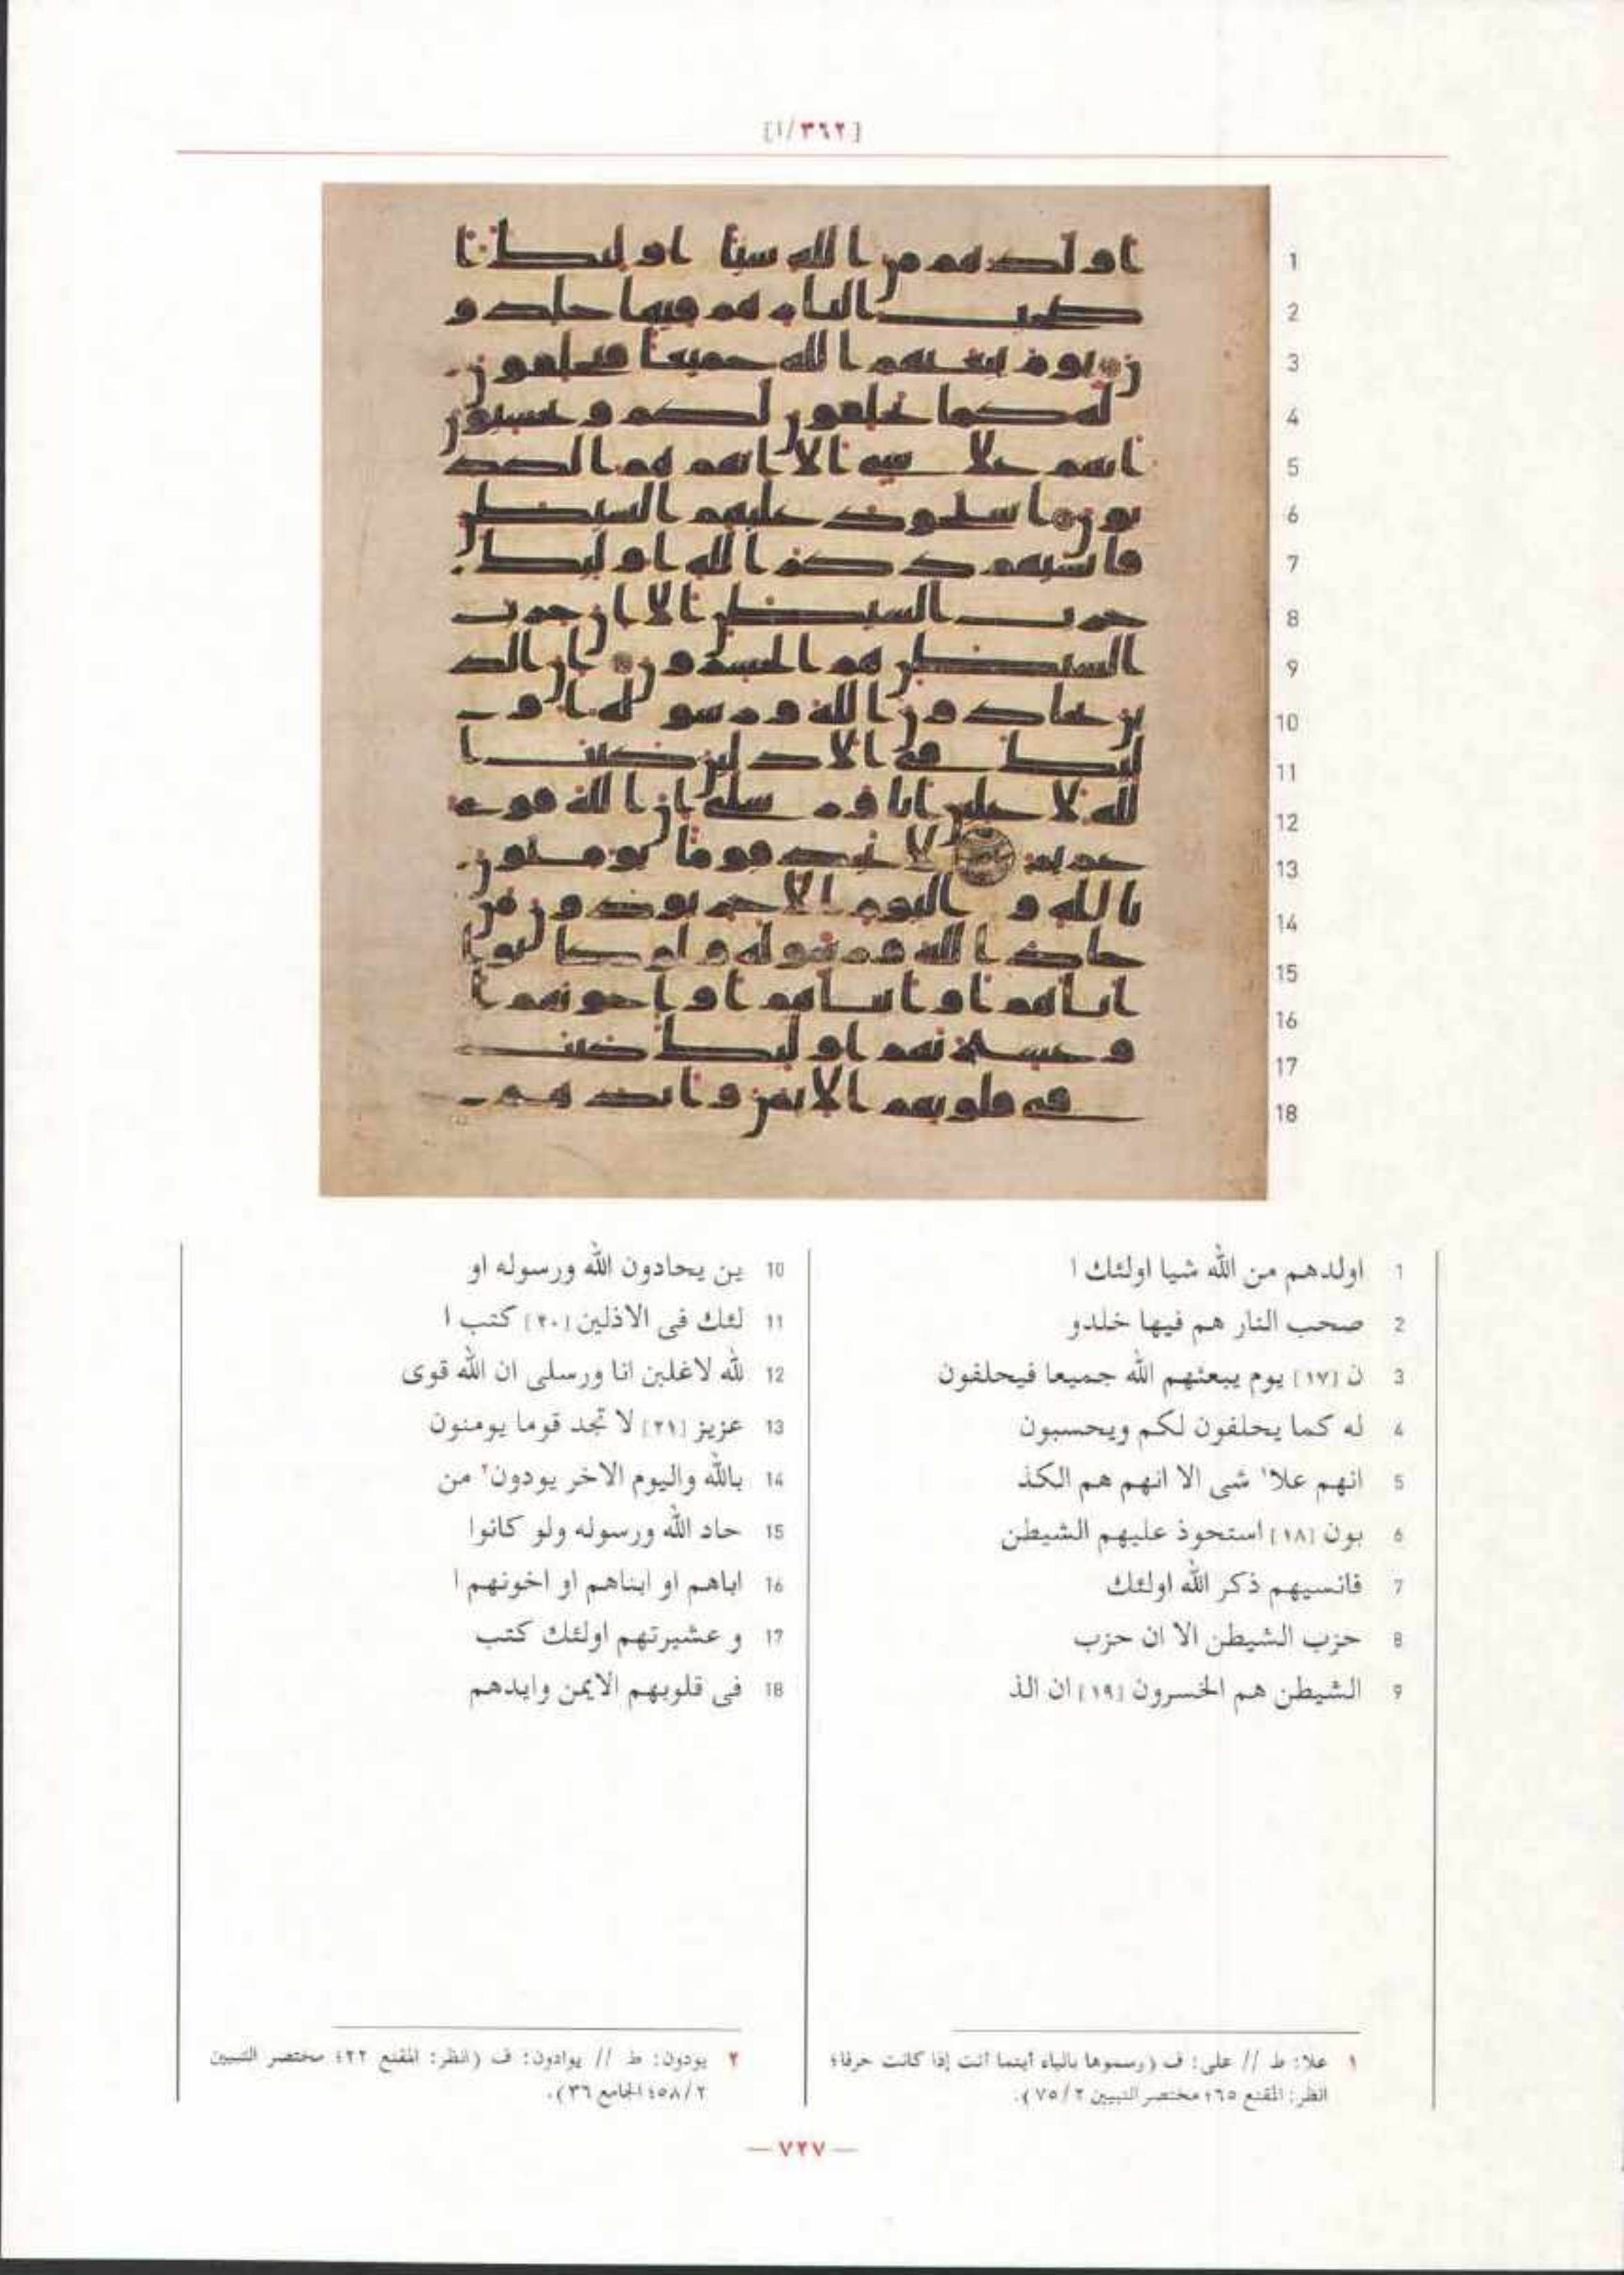 [٣٦٢/ا]
1
2
3
4
5
6
7
8
9
10
11
12
13
14
15
16
17
18
1 اولدهم من الله شيا اولئك ا
2 صحب النار هم فيها خلدو
3 ن [١٧] يوم يبعثهم الله جميعا فيحلفون
4 له كما يحلفون لكم ويحسبون
5 انهم علا١ شى الا انهم هم الكذ
6 بون [١٨] استحوذ عليهم الشيطن
7 فانسيهم ذكر الله اولئك
8 حزب الشيطن الا ان حزب
9 الشيطن هم الخسرون [١٩] ان الذ
10 ين يحادون الله ورسوله او
11 لئك فى الاذلين [٢٠] كتب ا
12 لله لاغلبن انا ورسلى ان الله قوى
13 عزيز [٢١] لا تجد قوما يومنون
14 بالله واليوم الاخر يودون٢ من
15 حاد الله ورسوله ولو كانوا
16 اباهم او ابناهم او اخونهم ا
17 و عشيرتهم اولئك كتب
18 فى قلوبهم الايمن وايدهم
١ علا: ط // على: ف (رسموها بالياء أينما أتت إذا كانت حرفا؛
انظر: المقنع ٦٥؛ مختصر التبيين ٧٥/٢).
٢ يودون: ط // يوادون: ف (انظر: المقنع ٢٢؛ مختصر التبيين
٥٨/٢؛ الجامع ٣٦).
— ٧٢٧ —